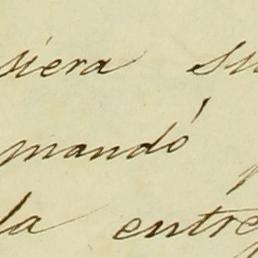 siera su
mandó
la entre